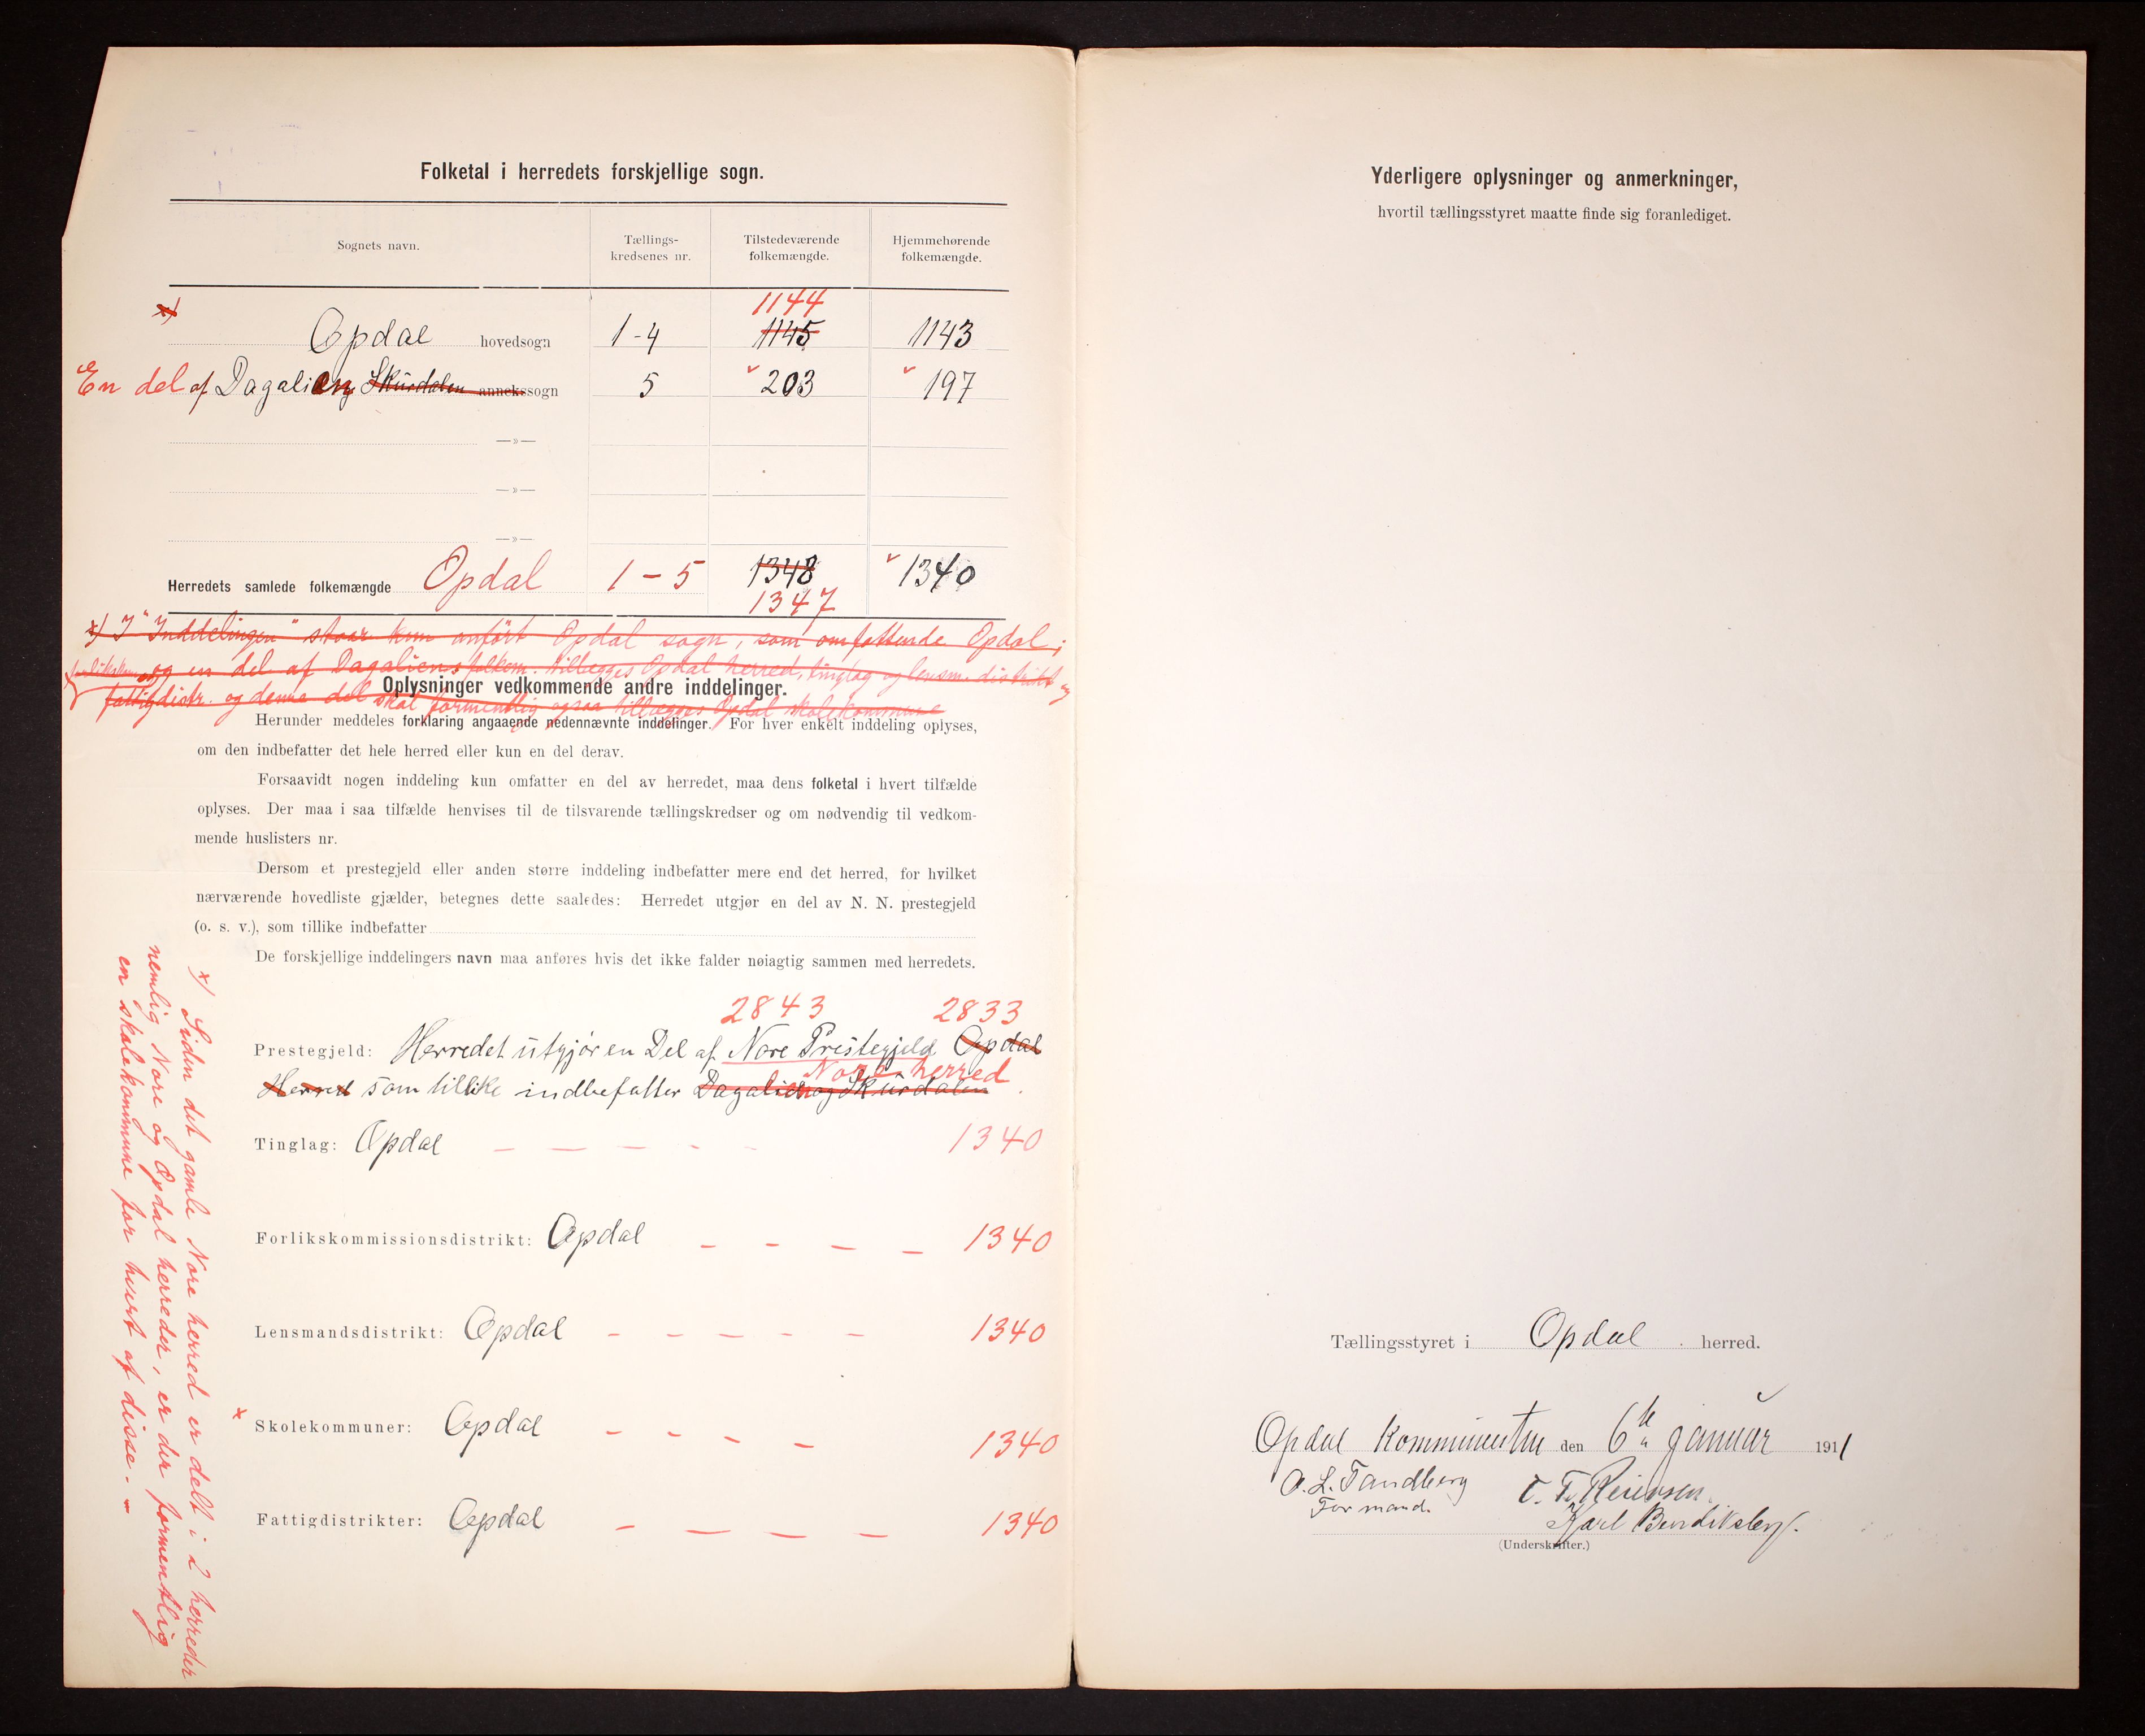 Folketal i herredets forskjellige sogn.
Sognets navn.
Tællings-
kredsenes nr.
Tilstedeværende
folkemængde.
Hjemmehørende
folkemængde.
x)
1144
Opdal hovedsogn 1-4 1145 1143
En del af Dagalien og Skurdalen annekssogn 5 203 197
—»—
—»—
—»—
Herredets samlede folkemængde Opdal 1-5 1348 1340
1347
x) I "Inddelingen" staar kun anført Opdal sogn, som omfattende Opdal;
og en del af Dagaliens folkem. tillægges Opdal herred, tinglag og lensm. distrikt og
fattigdistr. og denne del skal formentlig ogsaa tillægges Opdal skolekommune
Oplysninger vedkommende andre inddelinger.
Herunder meddeles forklaring angaaende nedennævnte inddelinger. For hver enkelt inddeling oplyses,
om den indbefatter det hele herred eller kun en del derav.
Forsaavidt nogen inddeling kun omfatter en del av herredet, maa dens folketal i hvert tilfælde
oplyses. Der maa i saa tilfælde henvises til de tilsvarende tællingskredser og om nødvendig til vedkom-
mende huslisters nr.
Dersom et prestegjeld eller anden større inddeling indbefatter mere end det herred, for hvilket
nærværende hovedliste gjælder, betegnes dette saaledes: Herredet utgjør en del av N. N. prestegjeld
(o. s. v.), som tillike indbefatter
De forskjellige inddelingers navn maa anføres hvis det ikke falder nøiagtig sammen med herredets.
2843 2833
Prestegjeld: Herredet utgjør en Del af Nore Prestegjeld Opdal
Nore herred
Herred som tillike indbefatter Dagalien og Skurdalen
Tinglag: Opdal — — — - - 1340
Forlikskommissionsdistrikt: Opdal — — — — 1340
Lensmandsdistrikt: Opdal — — — — — 1340
x Skolekommuner: Opdal — — — — 1340
Fattigdistrikter: Opdal — — — — 1340
x) Siden det gamle Nore herred er delt i 2 herreder
nemlig Nore og Opdal herreder, er der formentlig
en skolekommune for hvert af disse. —
Yderligere oplysninger og anmerkninger,
hvortil tællingsstyret maatte finde sig foranlediget.
Tællingsstyret i Opdal herred.
Opdal Kommune den 6te januar 1911
O. L. Tandberg
Formand.
T. T. Reiersen.
Karl Bendiksby.
(Underskrifter.)